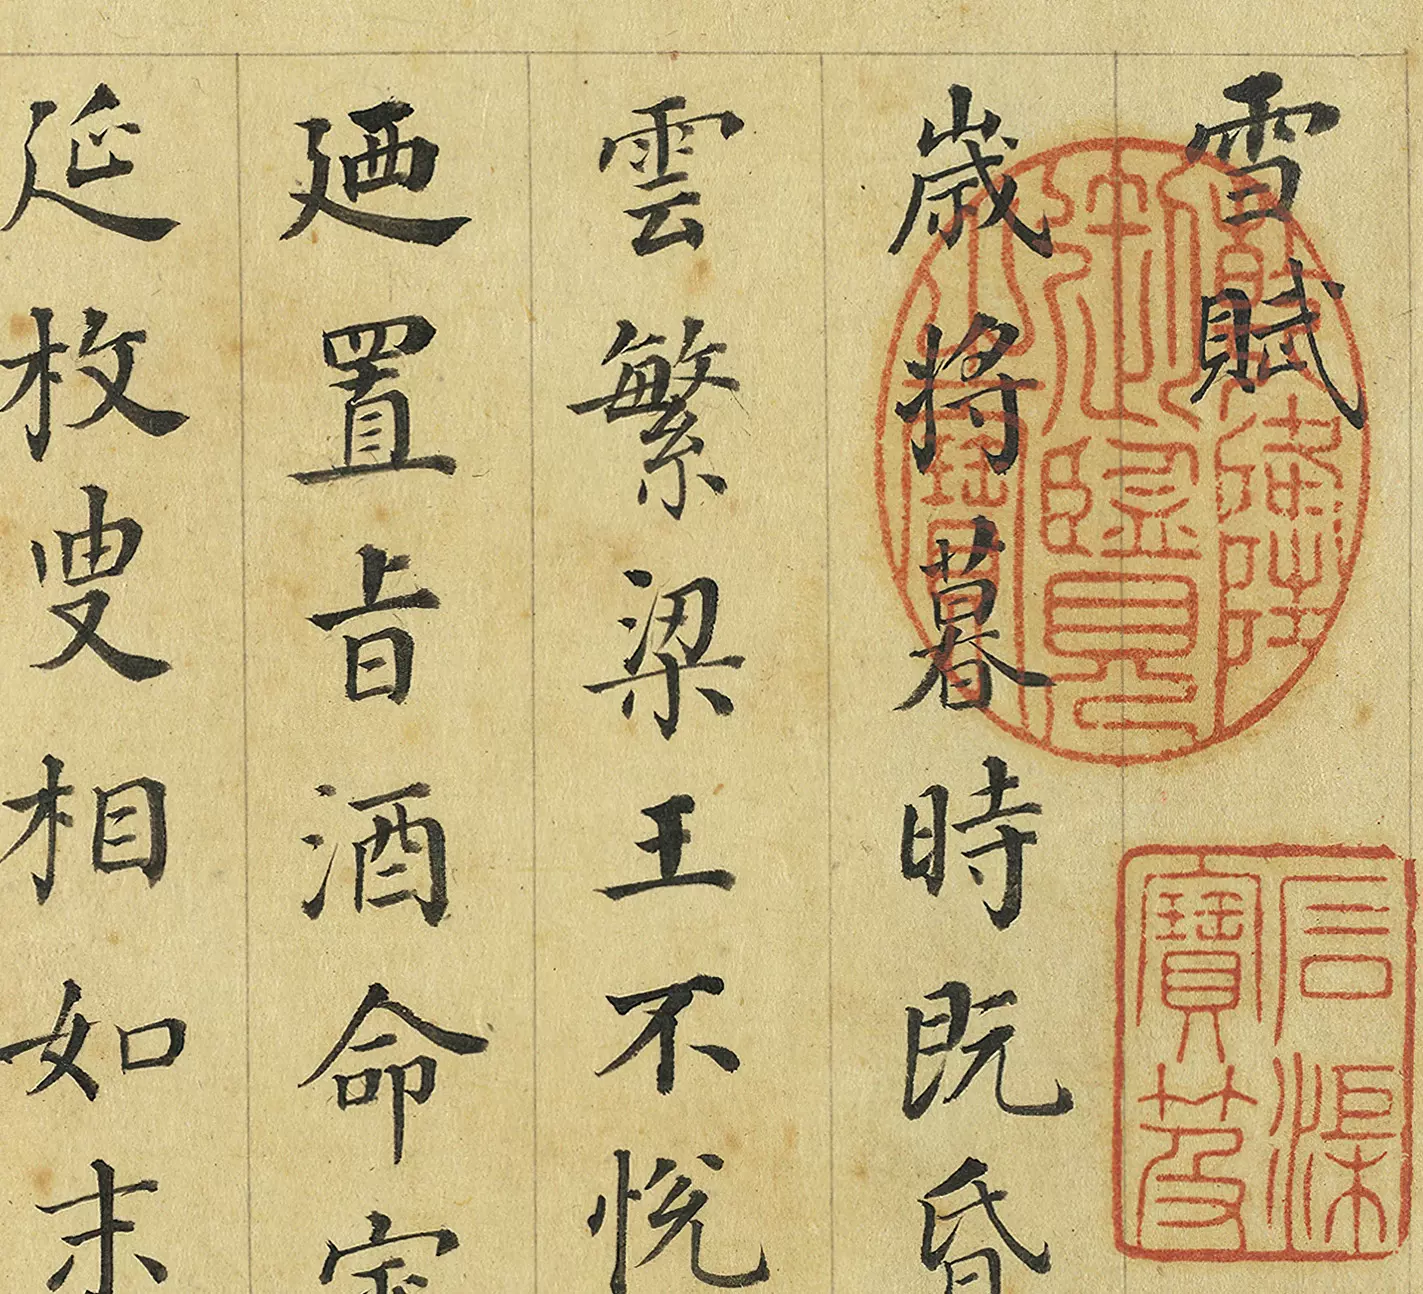 雪賦
歲將暮時既昏
雲繁梁王不悅
廼置旨酒命賓
延枚叟相如末
乾隆御覽之寶
石渠寶笈